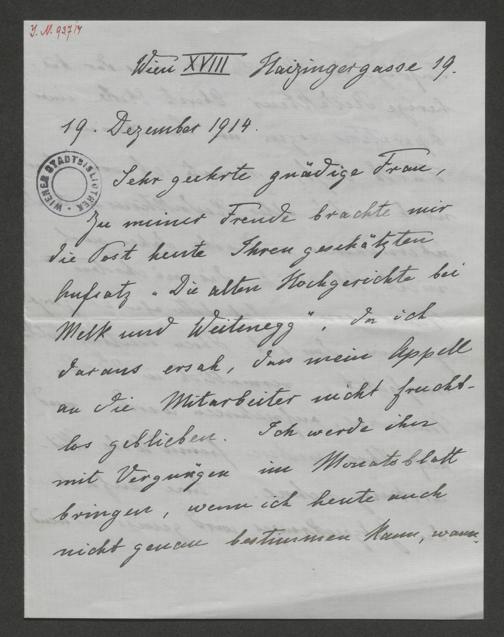 J. N. 937/4
Wien XVIII Haizingergasse 19.
19. Dezember 1914.
WIENER STADTBIBLIOTHEK
Sehr geehrte gnädige Frau,
Zu meiner Freude brachte mir
die Post heute Ihren geschätzten
Aufsatz „Die alten Hochgerichte bei
Melk und Weitenegg", da ich
daraus ersah, dass mein Appell
an die Mitarbeiter nicht frucht-
los geblieben. Ich werde ihn
mit Vergnügen im Monatsblatt
bringen, wenn ich heute auch
nicht genau bestimmen kann, wann.